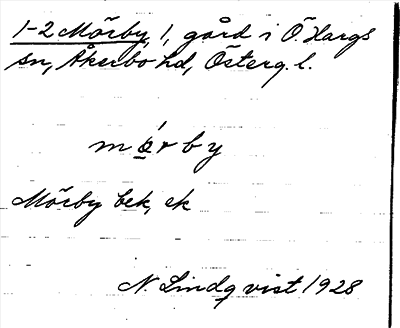 1-2 Mörby, 1, gård i Ö. Hargs
sn, Åkerbo hd, Österg. l.
mǿrby
Mörby bek, ek
N. Lindqvist 1928